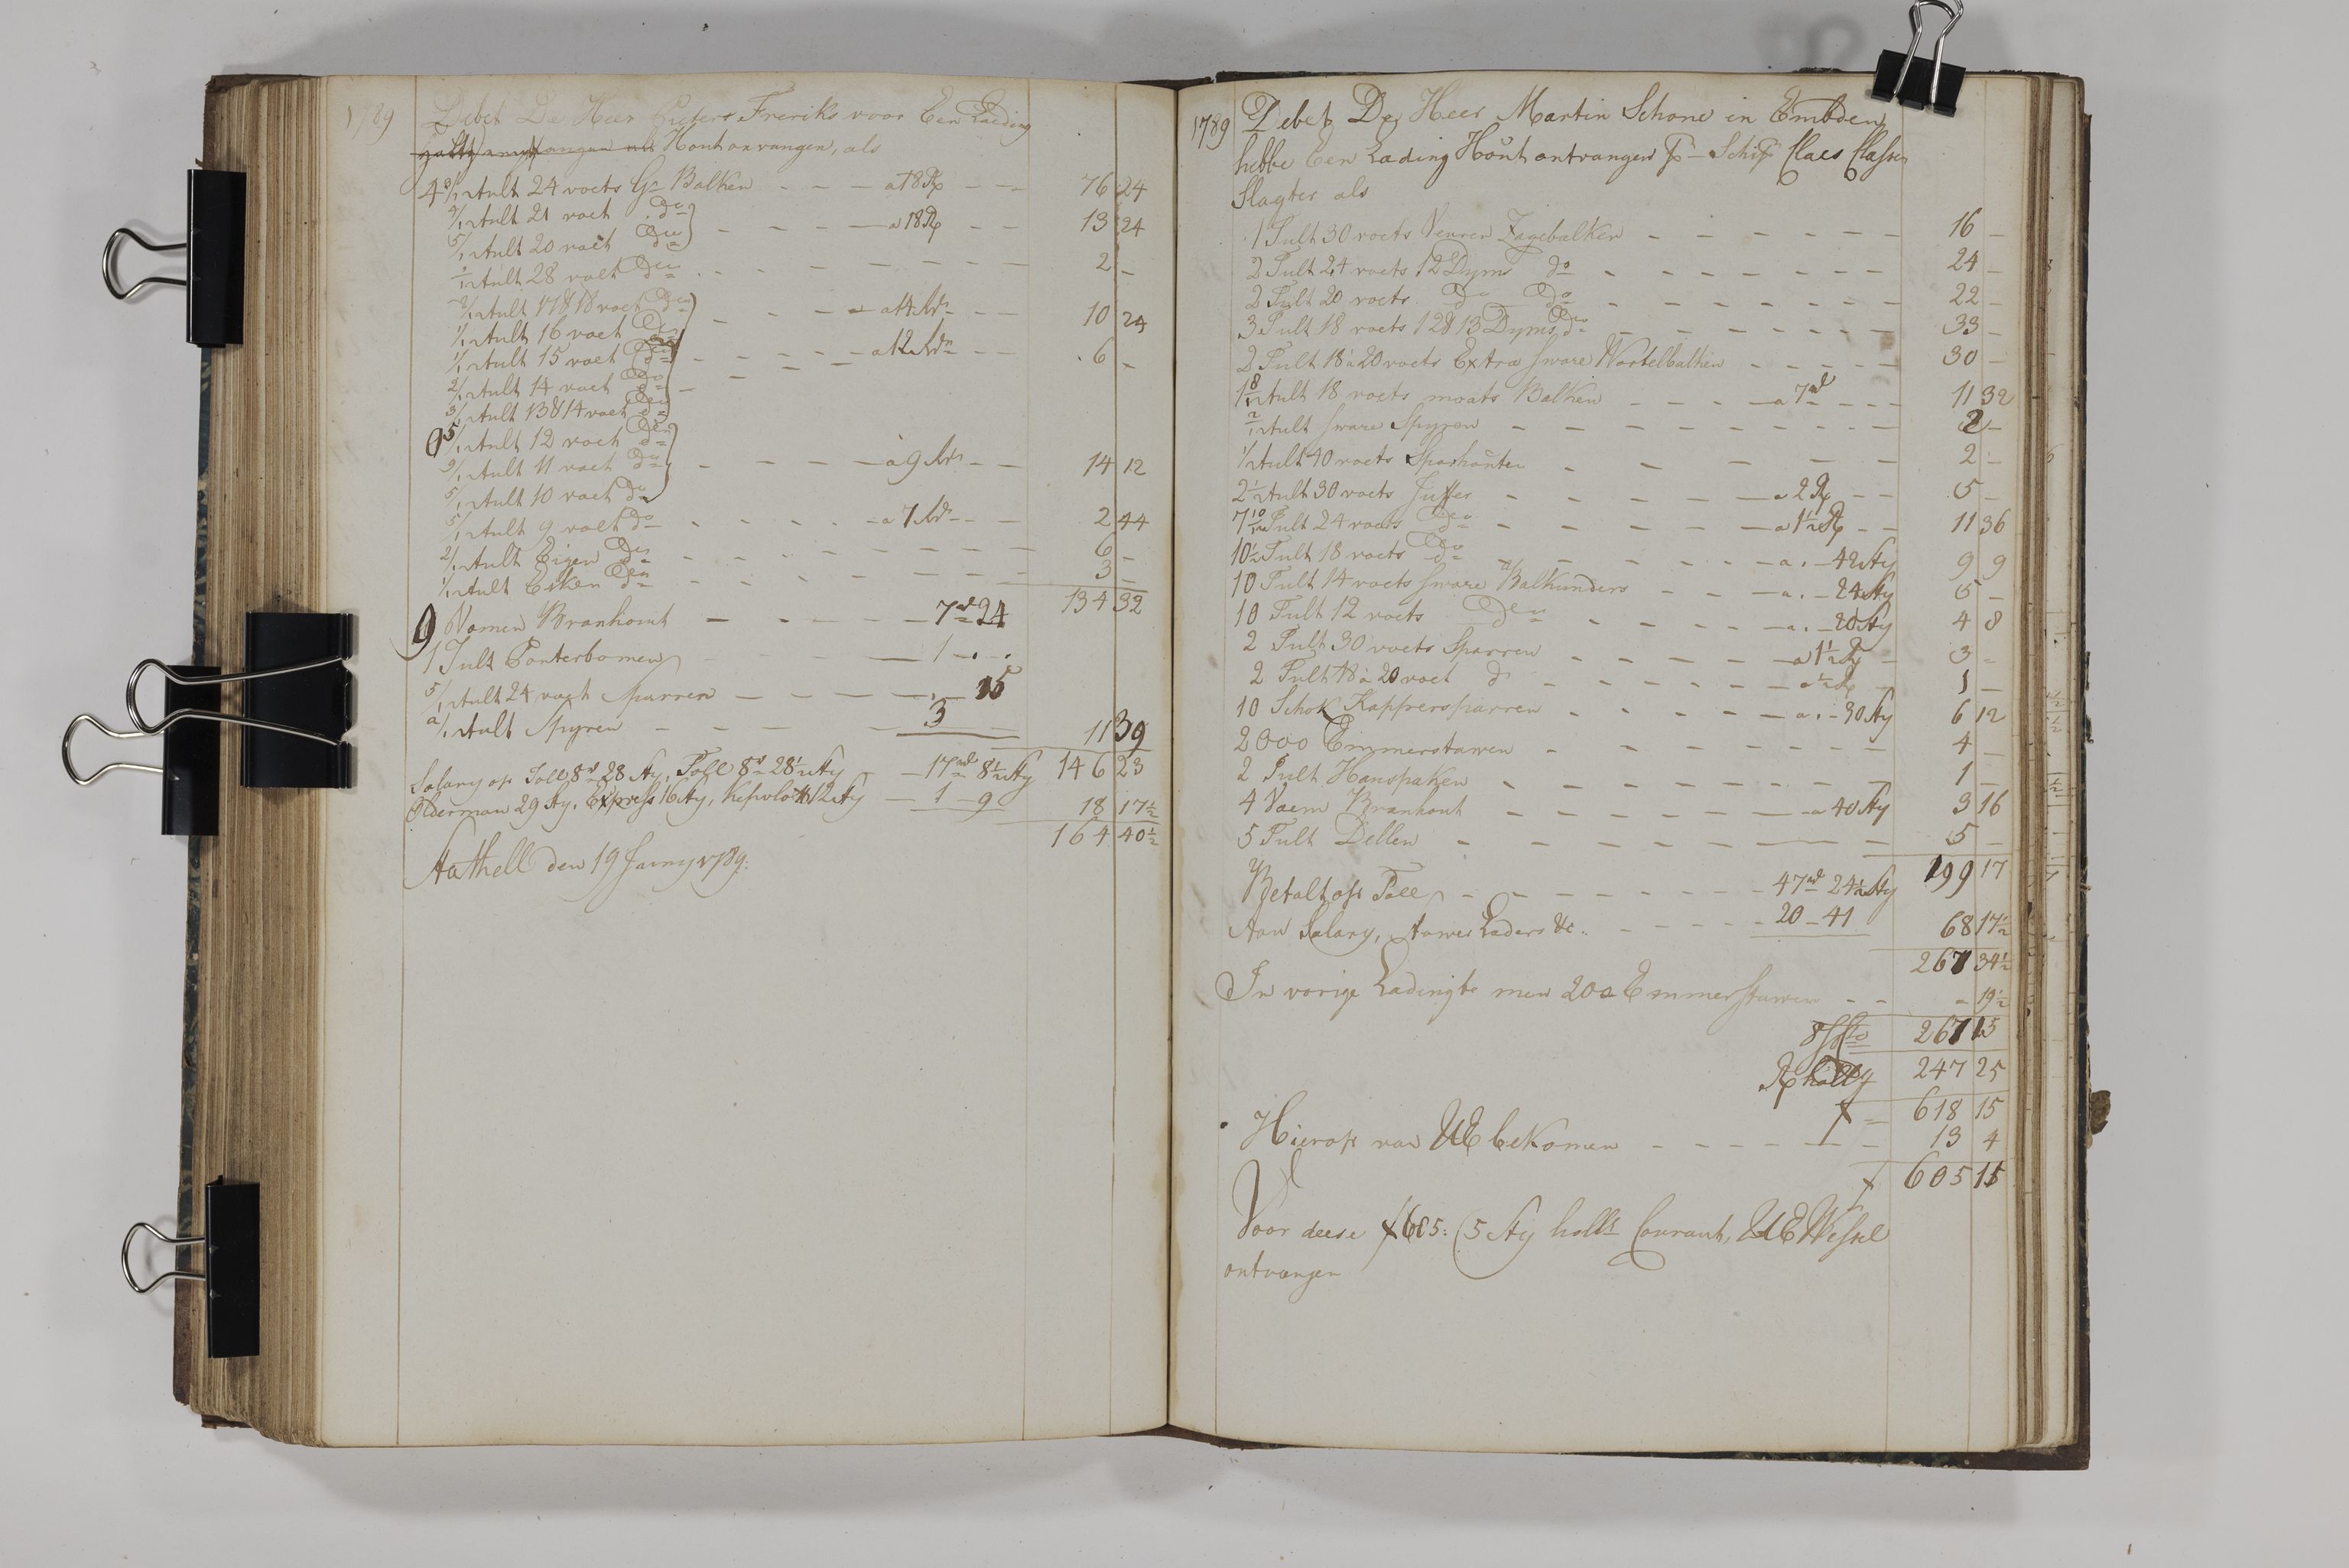 1789 Debet De Heer Pieters Freriks voor Een Lading
Hout onvangen, als
4 3/12 Tult 24 voets Gr Balken - - - a 18 R - - 76 24
4/12 Tult 21 voet do
5/12 Tult 20 voet do - - - - a 18 R - - 13 24
1/12 Tult 28 voet do - - - - - - 2 -
2/12 Tult 17 & 18 voet do
1/12 Tult 16 voet do - - - - a 14 Rdr - - 10 24
1/12 Tult 15 voet do - - - - a 12 Rdr - - 6 -
2/12 Tult 14 voet do
3/12 Tult 13 & 14 voet do
5/12 Tult 12 voet do
9/12 Tult 11 voet do - - - - a 9 Rdr - - 14 12
5/12 Tult 10 voet do
5/12 Tult 9 voet do - - - - a 7 Rdr - - 2 44
2/12 Tult Eigen do - - - - - - 6 -
1/12 Tult Esken do - - - - - - 3 -
134 32
9 Vamen Branhout - - - - 7 rd 24
1 Tult Ponterbomen - - - - 1 - . - .
5/12 Tult 24 voet Sparren - - - - . - 15
Tult Spyren - - - - 3 - 11 39
Salary op Toll 8 rd 28 Sty, Toll 8 rd 28 1/2 Sty - 17 rd 8 1/2 Sty 146 23
Olderman 29 Sty, Express 16 Sty, 12 Sty - 1 - 9 18 17 1/2
164 40 1/2
Hathell den 19 Juny 1789.
1789 Debet De Heer Martin Schone in Embden
hebbe Een Lading Hout ontvangen Schip Claes Classen
Slagter als
1 Tult 30 voets Veuren Zagebalken - - - - - - 16 -
2 Tult 24 voets 12 Dyms do - - - - - - 24 -
2 Tult 20 voets do do - - - - - - 22 -
3 Tult 18 voets 12 & 13 Dyms do - - - - - - 33 -
2 Tult 18 a 20 voets Extra sware Wortelbalken - - - - - 30 -
1 8/12 Tult 18 voets moats Balken - - - a 7 rd - - - 11 32
2/12 Tult sware Spyren - - - - - - 2 -
1/2 Tult 40 voets Sparhouten - - - - - - 2 -
2 1/2 Tult 30 voets Juffer - - - - - a 2 R - - 5 -
7 10/12 Tult 24 voets do - - - - - a 1 1/2 R - - 11 36
10 1/2 Tult 18 voets do - - - - - a . - 42 Sty 9 9
10 Tult 14 voets sware Balkunders - - - a . - 24 Sty 5 -
10 Tult 12 voets do - - - - a . - 20 Sty 4 8
2 Tult 30 voets Sparren - - - - - a 1 1/2 R - 3 -
2 Tult 18 a 20 voet d - - - - - a 1/2 R - 1 -
10 Schok Kappersparren - - - - - a . - 30 Sty 6 12
2000 Emmerstawen - - - - - - 4 -
2 Tult Hanspaken - - - - - - 1 -
4 Vaem Branhout - - - - - - a 40 Sty 3 16
5 Tult Dellen - - - - - - 5 -
199 17
Betalt op Toll - - - - - - 47 rd 24 1/2 Sty
Aan Salary, Laders &c. - - - - - 20 - 41 68 17 1/2
267 34 1/2
In vorige Lading te men 200 Emmerstawen - - - 19 1/2
267 15
R holl 247 25
f 618 15
Hierop van UE bekomen - - - - - - 13 4
f 605 15
Voor deese f 605: 15 Sty holls Courant, UE Wessel
ontvangen